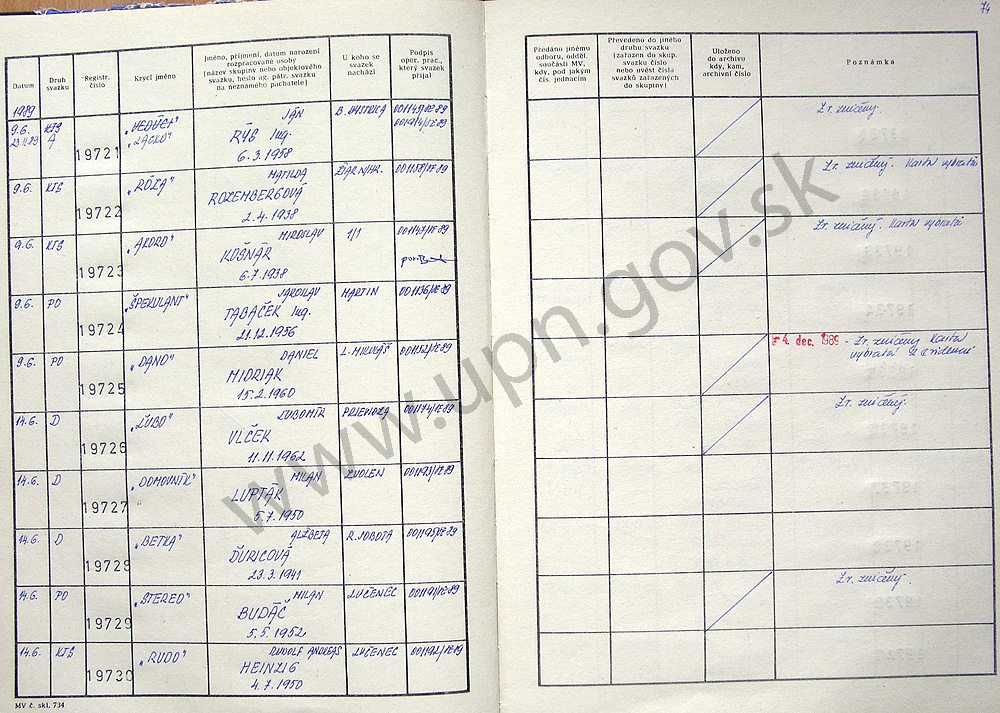 74
Datum
Druh svazku
Registr. číslo
Krycí jméno
Jméno, příjmení, datum narození
rozpracované osoby
(název skupiny nebo objektového
svazku, heslo ag. pátr. svazku
na neznámého pachatele)
U koho se
svazek
nachází
Podpis
oper. prac.,
který svazek
přijal
Předáno jinému
odboru, odděl.
součásti MV,
kdy, pod jakým
čís. jednacím
Převedeno do jiného
druhu svazku
(zařazen do skup.
svazku číslo
nebo uvést čísla
svazků zařazených
do skupiny)
Uloženo
do archivu
kdy, kam,
archivní číslo
Poznámka
1989
9.6. KTS "VEDÚCI" JÁN B. BYSTRICA
23.11.89 A "LACKO" RÝS Ing.
19721 6.3.1958
Zv. zničený.
9.6. KTS "RÓZA" MATILDA ŽIAR N/HR. 001158/VE 89
ROZENBERGOVÁ
19722 2.4.1938
Zv. zničený. Kartot. vybratá
9.6. KTS "AKORD" MIROSLAV 1/1 001147/VE 89
KOŠNÁR
19723 6.7.1938
Zv. zničený. Kartot. vybratá
9.6. PO "ŠPEKULANT" JAROSLAV MARTIN 001136/VE 89
TABAČEK Ing.
19724 21.12.1956
9.6. PO "DANO" DANIEL L. MIKULÁŠ 001152/VE 89
MIDRIAK
19725 15.2.1960
4. dec. 1989 - Zv. zničený Kartot.
vybratá z evidencií
14.6. D "ĽUBO" ĽUBOMÍR PRIEVIDZA 001174/VE 89
VLČEK
19726 11.11.1962
Zv. zničený.
14.6. D "DOMOVNÍK" MILAN ZVOLEN 001193/VE 89
LUPTÁK
19727 5.7.1950
14.6. D "BETKA" ALŽBETA R. SOBOTA 001195/VE 89
ĎURICOVÁ
19728 23.3.1941
14.6. PO "STEREO" MILAN LUČENEC 001191/VE 89
BUDÁČ
19729 5.5.1952
Zv. zničený.
14.6. KTS "RUDO" RUDOLF ANDREAS LUČENEC 001192/VE 89
HEINZIG
19730 4.7.1950
MV č. skl. 734
www.upn.gov.sk